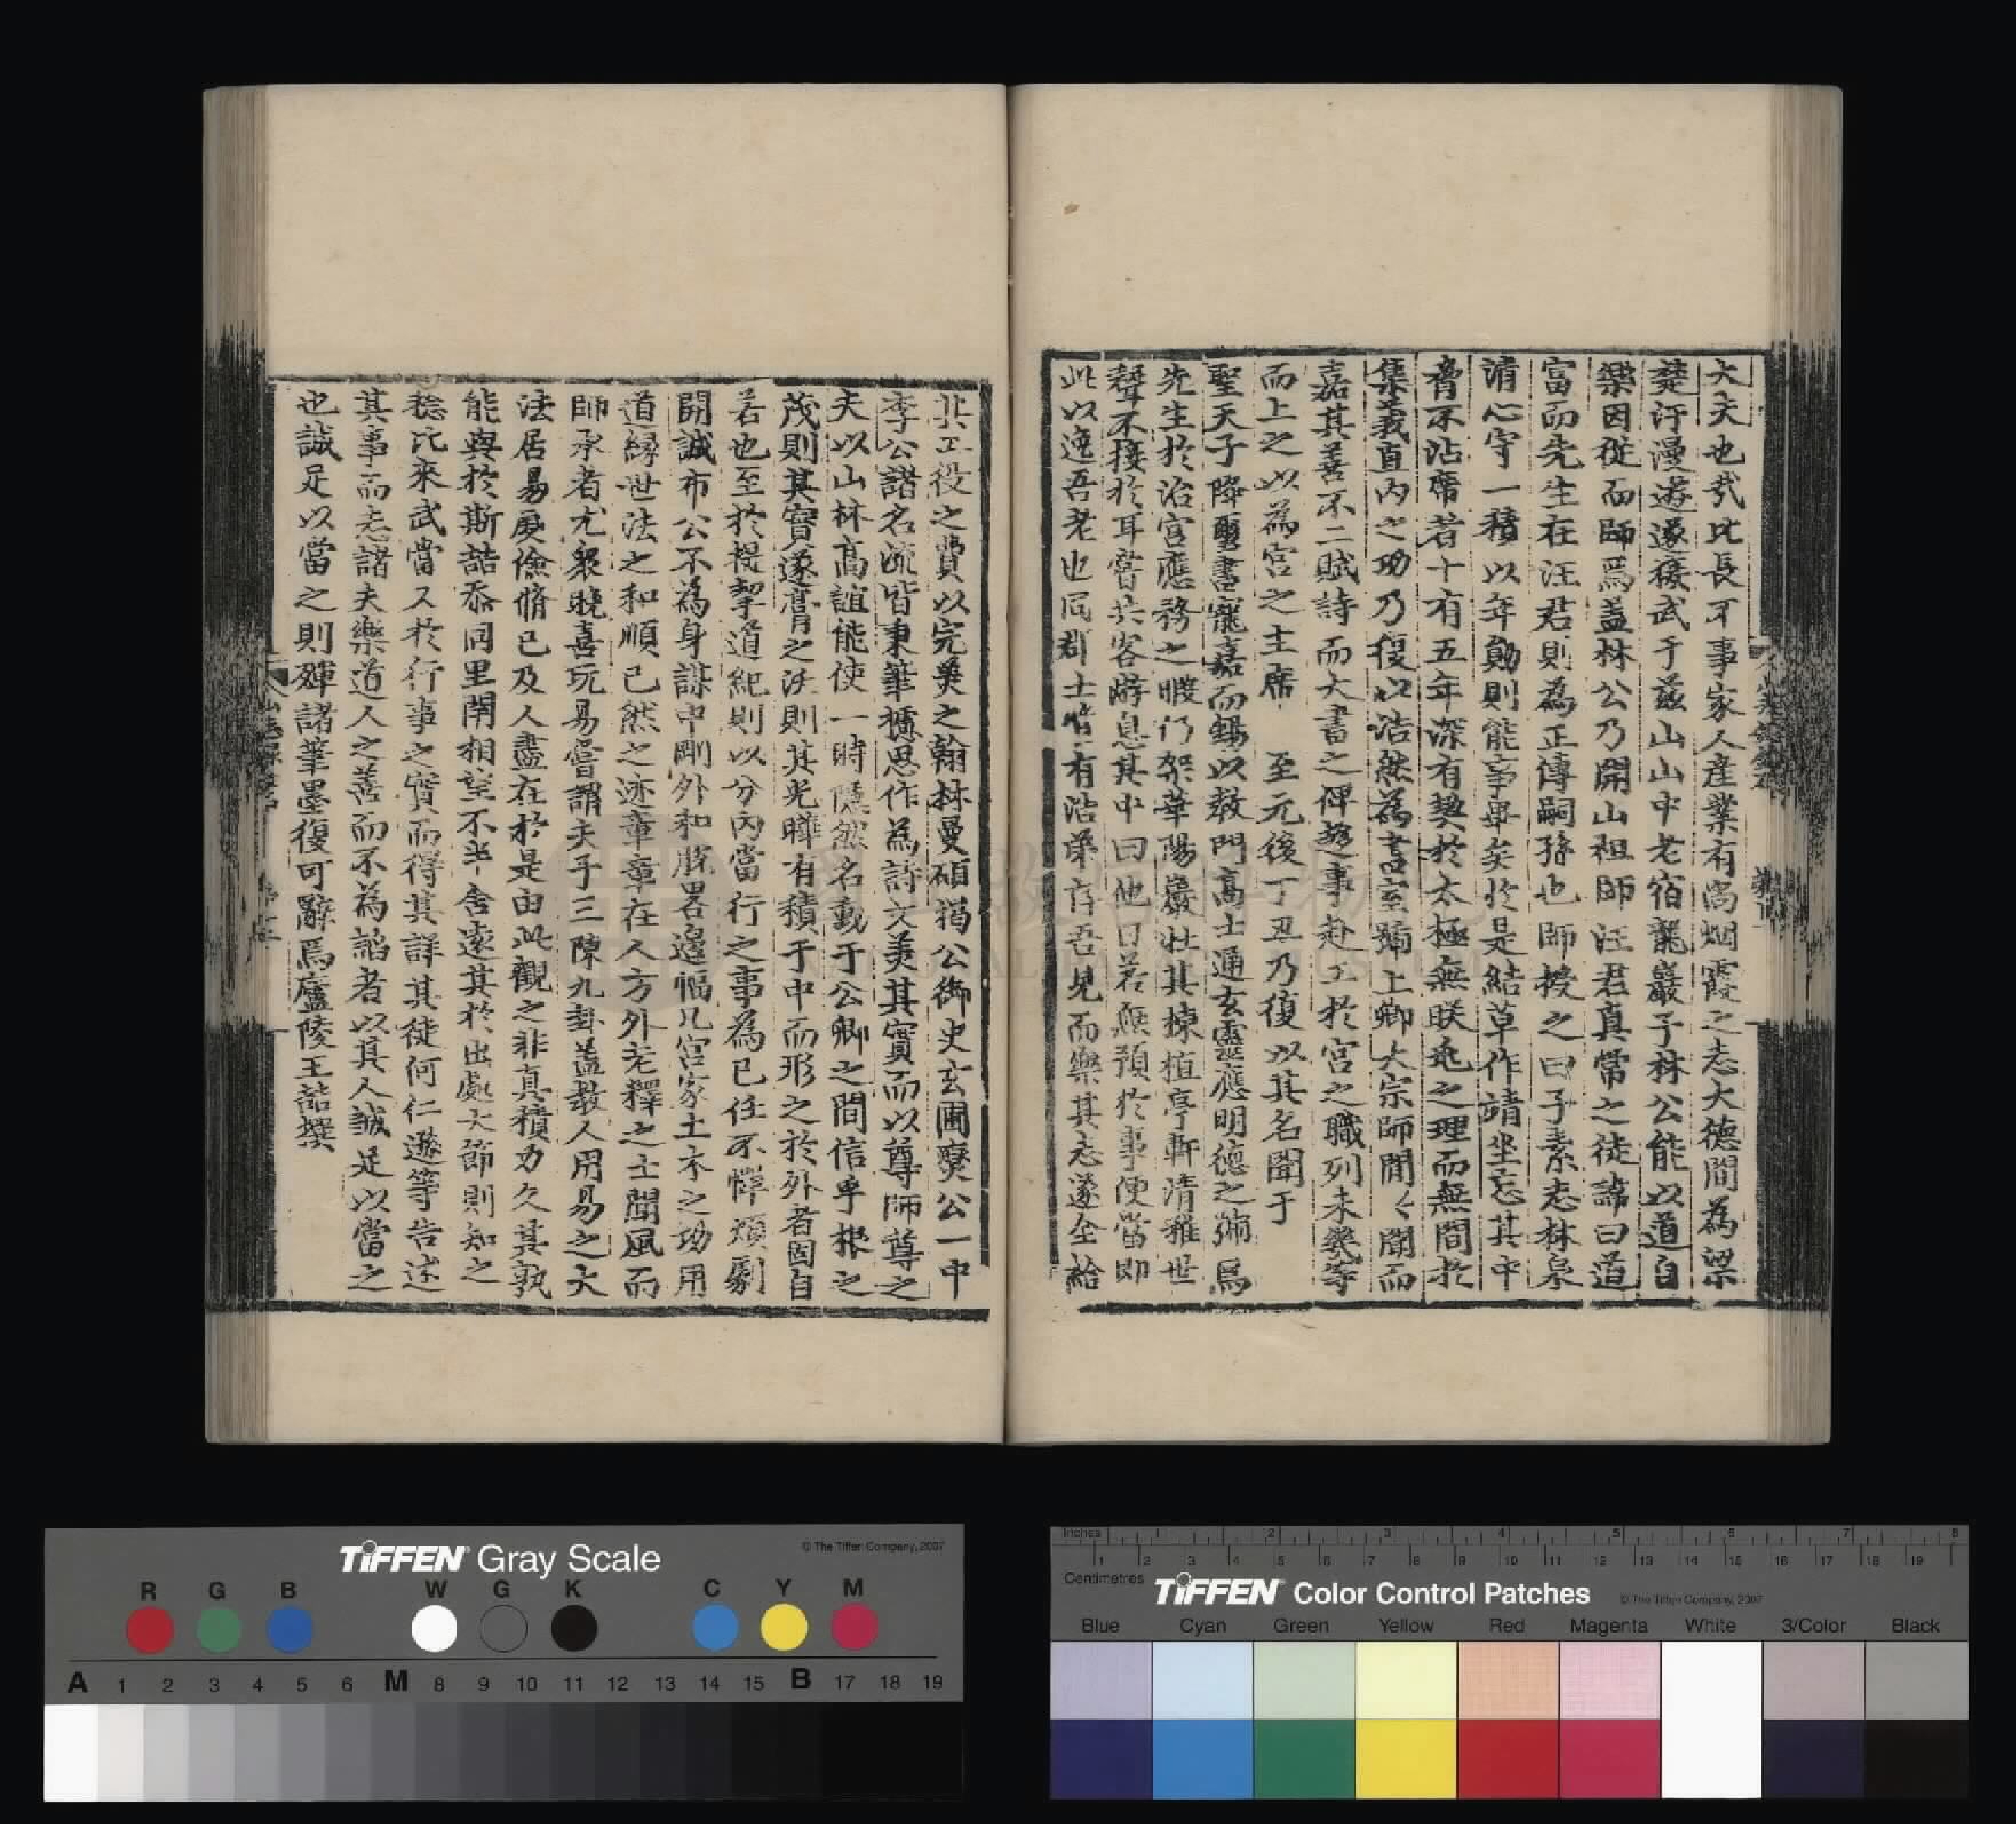 大夫也哉比長不事家人產業有尚烟霞之志大德間為梁
楚汙漫遊遂來武于茲山山中老宿龍巖子林公能以道自
樂因從而師焉盖林公乃開山祖師汪君真常之徒諦曰道
富而先生在汪君則為正傳嗣孫也師授之曰子素志林泉
清心守一積以年勛則能事畢矣於是結草作靖坐忘其中
脅不沾席者十有五年深有契於太極無朕兆之理而無間於
集義直内之功乃復以浩然為書室號上卿大宗師聞〻聞而
嘉其善不二賦詩而大書之俾趍事赴工於宮之職列未幾等
而上之以為宮之主席 至元後丁丑乃復以其名聞于
聖天子降璽書寵嘉而錫以教門高士通玄靈應明德之號焉
先生於治宮應務之暇仍架華陽巖壯其棟植亭軒清雅世
聲不接於耳嘗共客游息其中曰他日若無預於事便當即
此以逸吾老也同郡士 有沽 存吾見而樂其志遂全給
其工役之費以完美之翰林曼碩揭公御史玄圃燮公一中
李公諸名流皆秉筆攄思作為詩文美其實而以尊師尊之
夫以山林高誼能使一時隱然名動于公卿之間信乎根之
茂則其實遂膏之沃則其光曄有積于中而形之於外者固自
若也至於提挈道紀則以分内當行之事為己任不憚煩劇
開誠布公不為身謀中剛外和脫畧邊幅凡宮家土木之功用
道緣世法之和順已然之迹章章在人方外老釋之士聞風而
師承者尤衆晚喜玩易嘗謂夫子三陳九卦盖教人用易之大
法居易處儉脩己及人盡在於是由此觀之非真積力久其孰
能與於斯喆忝同里閈相望不半舍遠其於出處大節則知之
稔比來武當又於行事之實而得其詳其徒何仁邃等告述
其事而志諸夫樂道人之善而不為謟者以其人誠足以當之
也誠足以當之則殫諸筆墨復可辭焉廬陵王喆撰
TIFFEN Gray Scale
© The Tiffen Company, 2007
R G B W G K C Y M
A 1 2 3 4 5 6 M 8 9 10 11 12 13 14 15 B 17 18 19
Inches 1 2 3 4 5 6 7 8
1 2 3 4 5 6 7 8 9 10 11 12 13 14 15 16 17 18 19
Centimetres
TIFFEN Color Control Patches
© The Tiffen Company, 2007
Blue Cyan Green Yellow Red Magenta White 3/Color Black